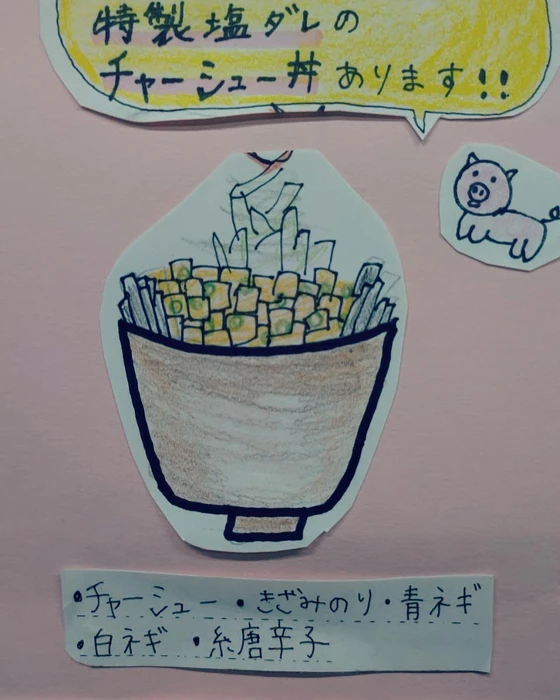 特製塩ダレの
チャーシュー丼あります!!
•チャーシュー•きざみのり•青ネギ
•白ネギ •糸唐辛子